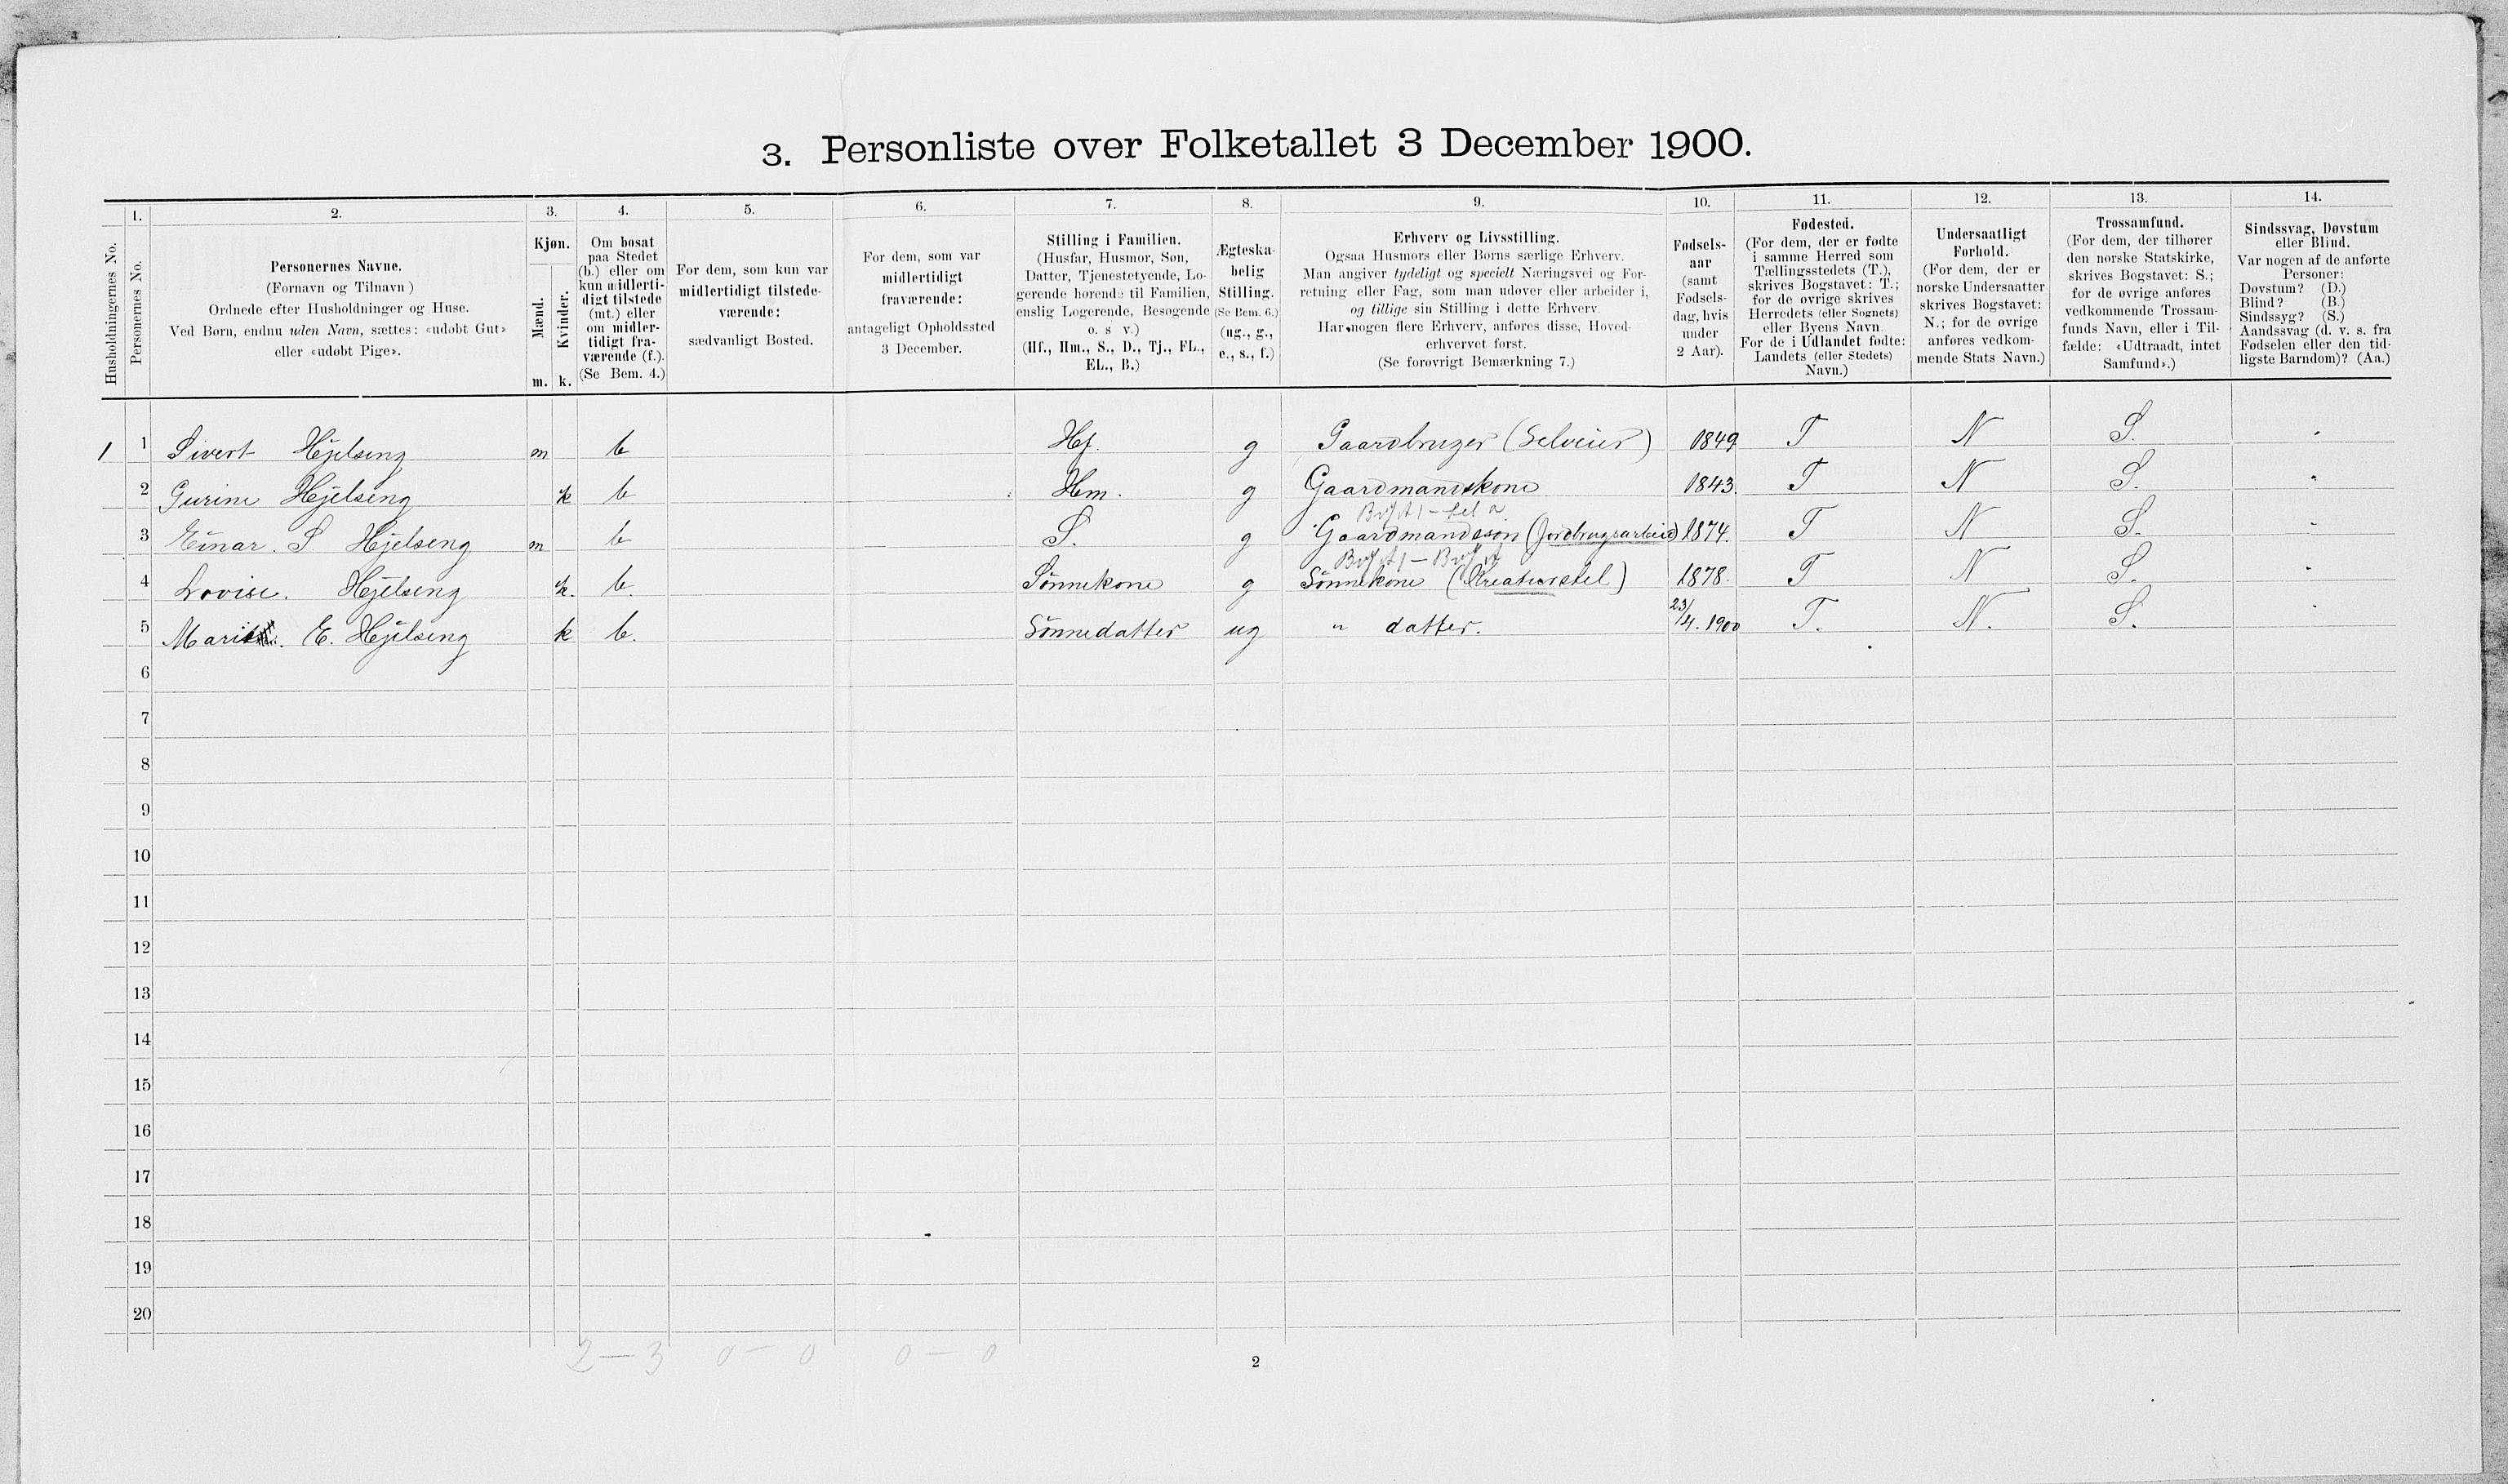 3. Personliste over Folketallet 3 December 1900.
Husholdningernes No.
1.
Personernes No.
2.
Personernes Navne.
(Fornavn og Tilnavn)
Ordnede efter Husholdninger og Huse.
Ved Børn, endnu uden Navn, sættes: «udøbt Gut»
eller «udøbt Pige».
3.
Kjøn.
Mænd.
m.
Kvinder.
k.
4.
Om bosat
paa Stedet
(b.) eller om
kun midlerti-
digt tilstede
(mt.) eller
om midler-
tidigt fra-
værende (f.).
(Se Bem. 4.)
5.
For dem, som kun var
midlertidigt tilstede-
værende:
sædvanligt Bosted.
6.
For dem, som var
midlertidigt
fraværende:
antageligt Opholdssted
3 December.
7.
Stilling i Familien.
(Husfar, Husmor, Søn,
Datter, Tjenestetyende, Lo-
gerende hørende til Familien,
enslig Logerende, Besøgende
o. s v.)
(Hf., Hm., S., D., Tj., FL.,
EL., B.)
8.
Ægteska-
belig
Stilling.
(Se Bem. 6.)
(ug., g.,
e., s., f.)
9.
Erhverv og Livsstilling.
Ogsaa Husmors eller Børns særlige Erhverv.
Man angiver tydeligt og specielt Næringsvei og For-
retning eller Fag, som man udøver eller arbeider i,
og tillige sin Stilling i dette Erhverv.
Har nogen flere Erhverv, anføres disse, Hoved-
erhvervet først.
(Se forøvrigt Bemærkning 7.)
10.
Fødsels-
aar
(samt
Fødsels-
dag, hvis
under
2 Aar).
11.
Fødested.
(For dem, der er fødte
i samme Herred som
Tællingsstedets (T.),
skrives Bogstavet: T.;
for de øvrige skrives
Herredets (eller Sognets)
eller Byens Navn.
For de i Udlandet fødte:
Landets (eller Stedets)
Navn.)
12.
Undersaatligt
Forhold.
(For dem, der er
norske Undersaatter
skrives Bogstavet:
N.; for de øvrige
anføres vedkom-
mende Stats Navn.)
13.
Trossamfund.
(For dem, der tilhører
den norske Statskirke,
skrives Bogstavet: S.;
for de øvrige anføres
vedkommende Trossam-
funds Navn, eller i Til-
fælde: «Udtraadt, intet
Samfund».)
14.
Sindssvag, Døvstum
eller Blind.
Var nogen af de anførte
Personer:
Døvstum? (D.)
Blind? (B.)
Sindssyg? (S.)
Aandssvag (d. v. s. fra
Fødselen eller den tid-
ligste Barndom)? (Aa.)
1 1 Sivert Hjelseng m b Hf. g Gaardbruger (Selveier) 1849 T N S.
2 Gurine Hjelseng k b Hm. g Gaardmandskone 1843. T N S.
3 Einar. S Hjelseng m b S. g Gaardmandssøn (Jordbrugsarbeid) 1874. T N S.
4 Lovise. Hjelseng k. b. Sönnekone g Sönnekone (Kreaturstel) 1878. T N S.
5 Marit. E. Hjelseng k b. Sönnedatter ug " datter. 23/4. 1900 T. N. S.
6
7
8
9
10
11
12
13
14
15
16
17
18
19
20
2 — 3 0 — 0 0 — 0
2